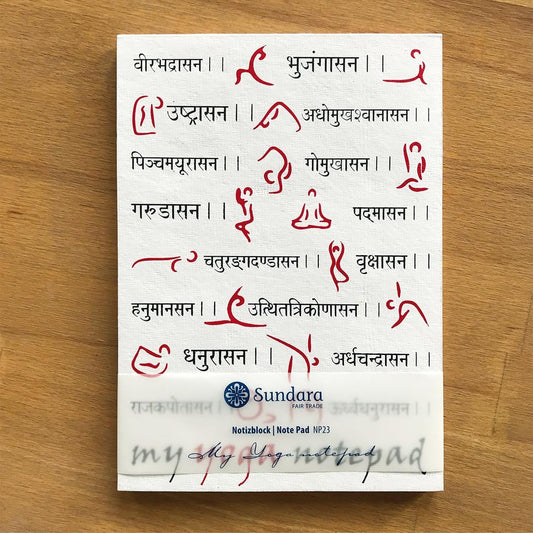 वीरभद्रासन।। भुजंगासन।।
उष्ट्रासन।। अधोमुखश्वानासन
पिञ्चमयूरासन गोमुखासन।।
गरुडासन।। पद्मासन।।
चतुरङ्गदण्डासन।। वृक्षासन।।
हनुमानसन।। उत्थितत्रिकोणासन।।
धनुरासन।। अर्धचन्द्रासन।।
Sundara
FAIR TRADE
राजकपोतासन।। ऊर्ध्वधनुरासन।।
Notizblock | Note Pad NP23
my yoga notepad
My Yoga notepad